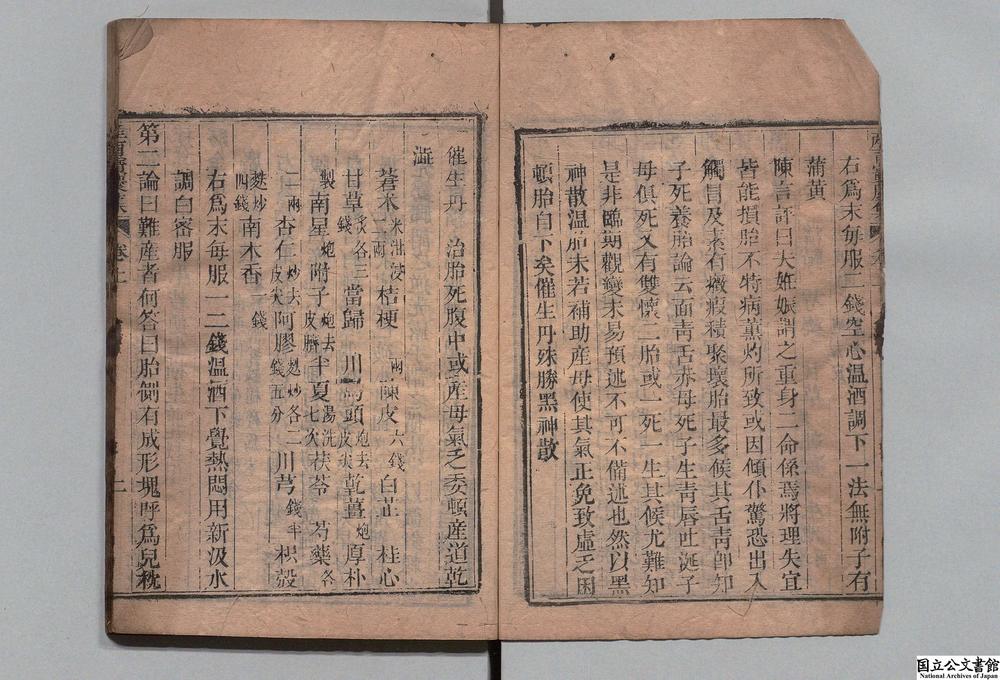 右爲末每服二錢空心温酒調下一法無附子有
蒲黄
陳言評曰夫姙娠謂之重身二命係焉將理失宜
皆能損胎不特病薰灼所致或因傾仆驚恐出入
觸冒及素有癥瘕積聚壞胎最多候其舌青卽知
子死養胎論云面靑舌赤母死子生靑唇吐涎子
母俱死又有雙懷二胎或一死一生其候尤難知
是非臨期觀變未易預述不可不備述也然以黑
神散温胎未若補助産母使其氣正免致虛乏困
頓胎自下矣催生丹殊勝黑神散
催生丹 治胎死腹中或産母氣乏委頓産道乾
澁
蒼术米泔浸二兩 桔梗一兩 陳皮六錢 白芷 桂心
甘草炙各三錢 當歸 川烏頭炮去皮尖 乾薑炮 厚朴
製 南星炮 附子炮去皮臍 半夏湯洗七次 茯苓 芍藥各
二兩 杏仁炒去皮尖 阿膠麩炒各二錢五分 川芎錢半 枳殼
麩炒四錢 南木香一錢
右爲末每服一二錢温酒下覺熱悶用新汲水
調白蜜服
第二論曰難産者何答曰胎側有成形塊呼爲兒枕
卷上
二
国立公文書館
National Archives of Japan